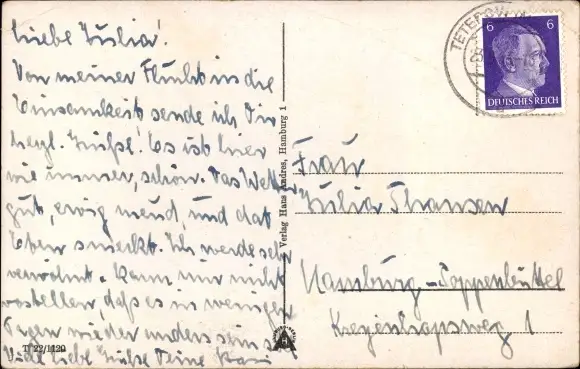 Liebe Julia!
Von meiner Flucht in die
Einsamkeit sende ich Dir
herzl. Grüße! Es ist hier
wie immer, schön. Das Wetter
gut, und das
Ich werde sehr
verwöhnt. Kann mir nicht
vorstellen, daß es in wenigen
Tagen wieder anders sein soll
Viele liebe Grüße Deine
TI 22/1120
Verlag Hans Andres, Hamburg 1
TETEROW
6 6
DEUTSCHES REICH
Frau
Julia Thansen
Hamburg-Poppenbüttel
1